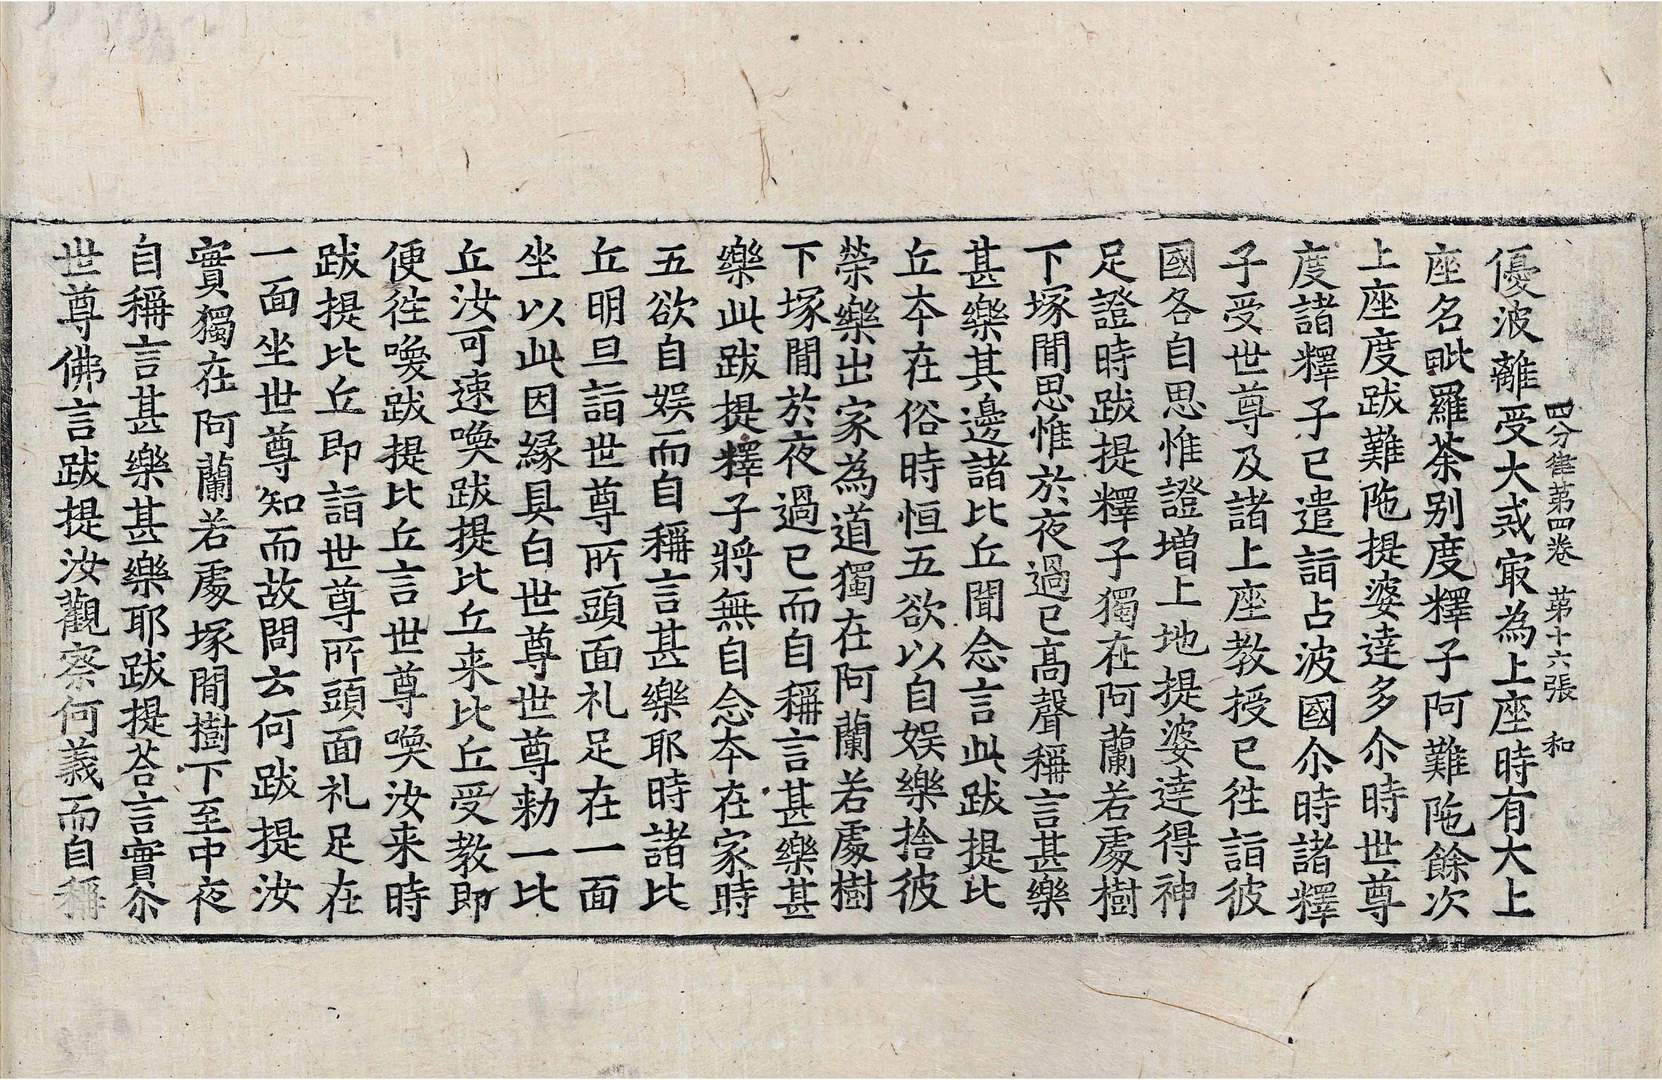 四分律苐四卷 苐十六張 和
優波離受大戒㝡為上座時有大上
座名毗羅荼别度釋子阿難陁餘次
上座度跋難陁提婆達多尒時世尊
度諸釋子已遣詣占波國尒時諸釋
子受世尊及諸上座教授已徃詣彼
國各自思惟證増上地提婆達得神
足證時跋提釋子獨在阿蘭若處樹
下塚間思惟於夜過已高聲稱言甚樂
甚樂其邊諸比丘聞念言此跋提比
丘本在俗時恒五欲以自娱樂捨彼
榮樂出家為道獨在阿蘭若處樹
下塚間於夜過已而自稱言甚樂甚
樂此跋提釋子將無自念本在家時
五欲自娱而自稱言甚樂耶時諸比
丘明旦詣世尊所頭面礼足在一面
坐以此因緣具白世尊世尊勑一比
丘汝可速喚跋提比丘来比丘受教即
便徃喚跋提比丘言世尊喚汝来時
跋提比丘即詣世尊所頭面礼足在
一面坐世尊知而故問云何跋提汝
實獨在阿蘭若處塚間樹下至中夜
自稱言甚樂甚樂耶跋提荅言實尒
世尊佛言跋提汝觀察何義而自稱